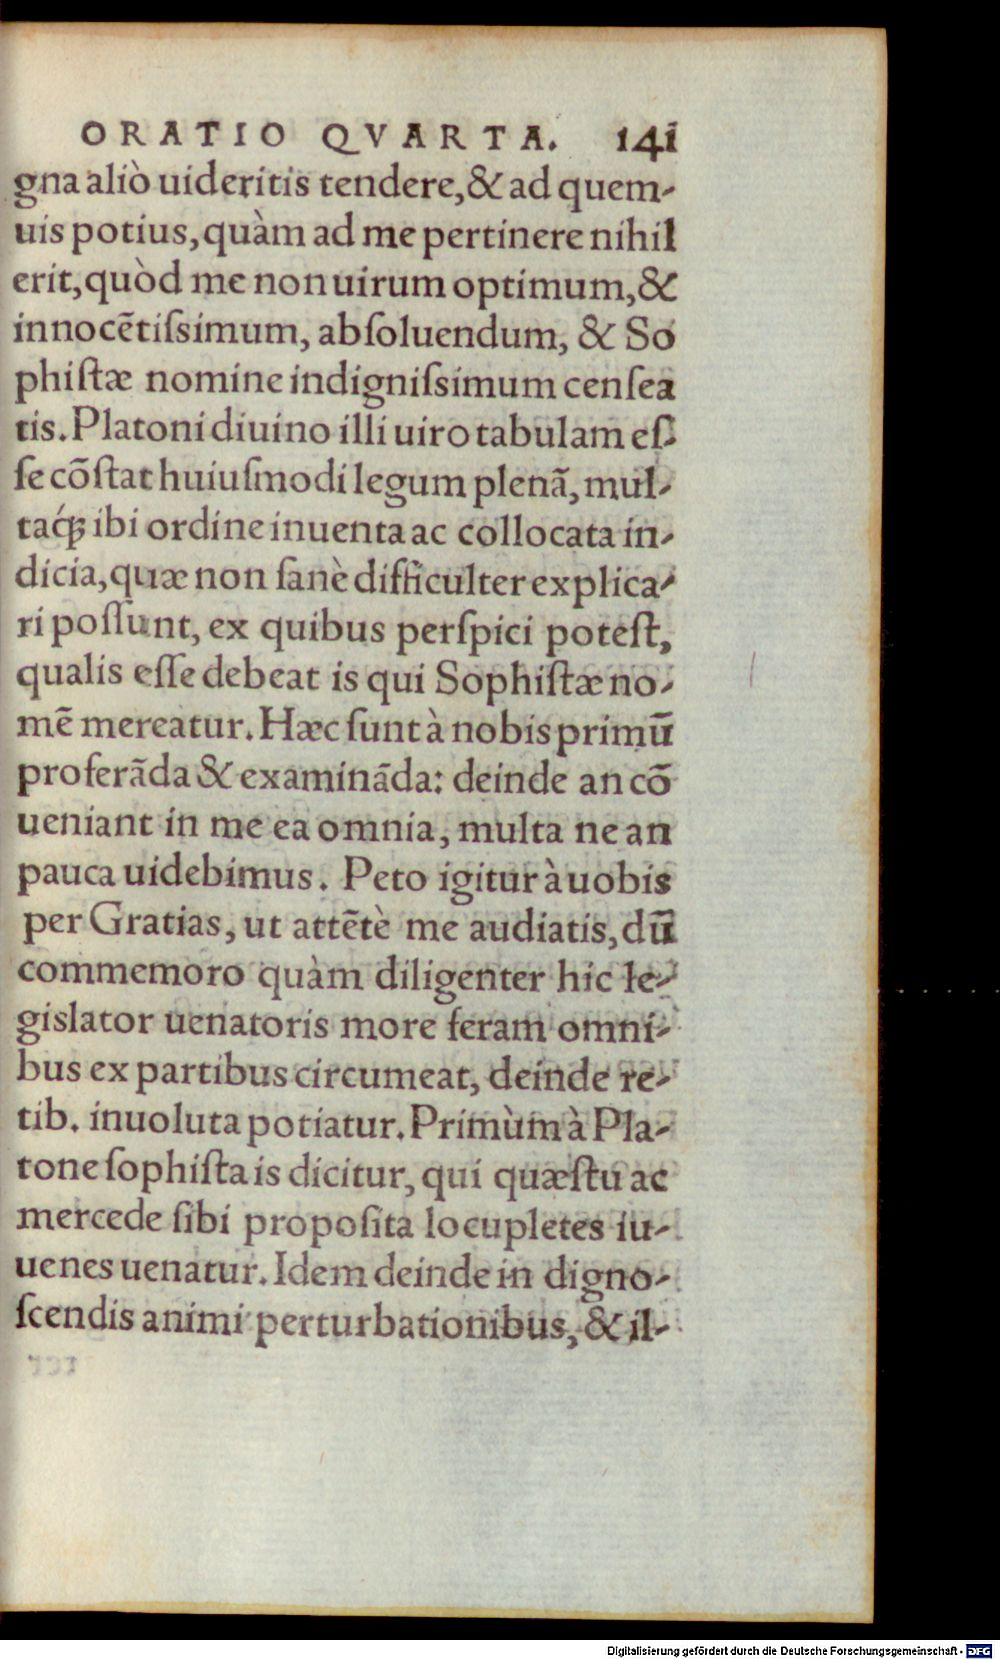 ORATIO QVARTA. 141
gna aliò uideritis tendere, & ad quem-
uis potius, quàm ad me pertinere nihil
erit, quòd me non uirum optimum, &
innocẽtiſsimum, abſoluendum, & So
phiſtæ nomine indigniſsimum cenſea
tis. Platoni diuino illi uiro tabulam eſ-
ſe cõſtat huiuſmodi legum plenã, mul-
tacꝗ́; ibi ordine inuenta ac collocata in-
dicia, quæ non ſanè difficulter explica-
ri poſſunt, ex quibus perſpici poteſt,
qualis eſſe debeat is qui Sophiſtæ no-
mẽ mereatur. Hæc ſunt à nobis primũ
proferãda & examinãda: deinde an cõ
ueniant in me ea omnia, multa ne an
pauca uidebimus. Peto igitur à uobis
per Gratias, ut attẽtè me audiatis, dũ
commemoro quàm diligenter hic le-
gislator uenatoris more feram omni-
bus ex partibus circumeat, deinde re-
tib. inuoluta potiatur. Primùm à Pla-
tone ſophiſta is dicitur, qui quæſtu ac
mercede ſibi propoſita locupletes iu-
uenes uenatur. Idem deinde in digno-
ſcendis animi perturbationibus, & il-
Digitalisierung gefördert durch die Deutsche Forschungsgemeinschaft - DFG